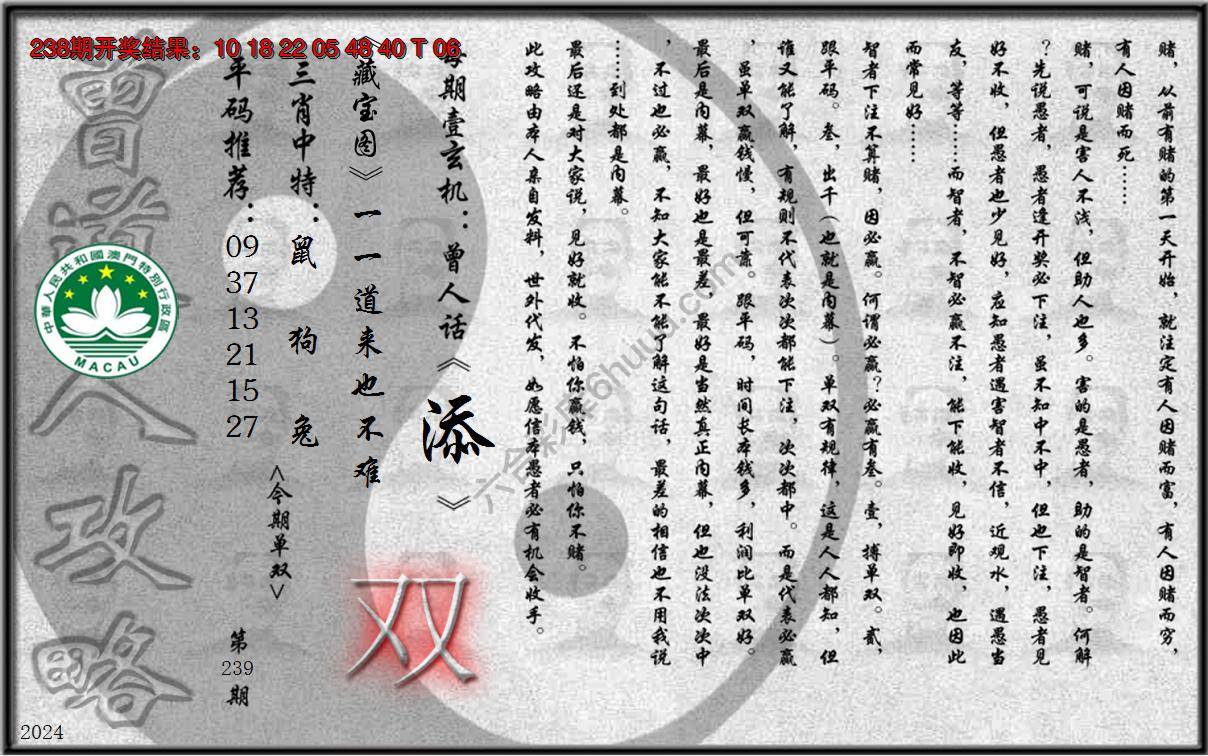 238期开奖结果：10 18 22 05 48 40 T 06
赌，从前有赌的第一天开始，就注定有人因赌而富，有人因赌而穷，
有人因赌而死……
赌，可说是害人不浅，但助人也多。害的是愚者，助的是智者。何解
？先说愚者，愚者逢开奖必下注，虽不知中不中，但也下注，愚者见
好不收，但愚者也少见好，应知愚者遇害智者不信，近观水，遇愚当
友，等等……而智者，不智必赢不注，能下能收，见好即收，也因此
而常见好……
智者下注不算赌，因必赢。何谓必赢？必赢有叁。壹，搏单双。贰，
跟平码。叁，出千（也就是内幕）。单双有规律，这是人人都知，但
谁又能了解，有规则不代表次次都能下注，次次都中。而是代表必赢
，虽单双赢钱慢，但可靠。跟平码，时间长本钱多，利润比单双好。
最后是内幕，最好也是最差，最好是当然真正内幕，但也没法次次中
，不过也必赢，不知大家能不能了解这句话，最差的相信也不用我说
……到处都是内幕。
最后还是对大家说，见好就收。不怕你赢钱，只怕你不赌。
此攻略由本人亲自发料，世外代发，如愿信本愚者必有机会收手。
每期壹玄机：曾人话《添》
《藏宝图》一一道来也不难
双
三肖中特：鼠 狗 兔
<今期单双>
平码推荐：09 37 13 21 15 27
第239期
曾道人攻略
中華人民共和國澳門特別行政區
MACAU
六合彩库6huuu.com
2024